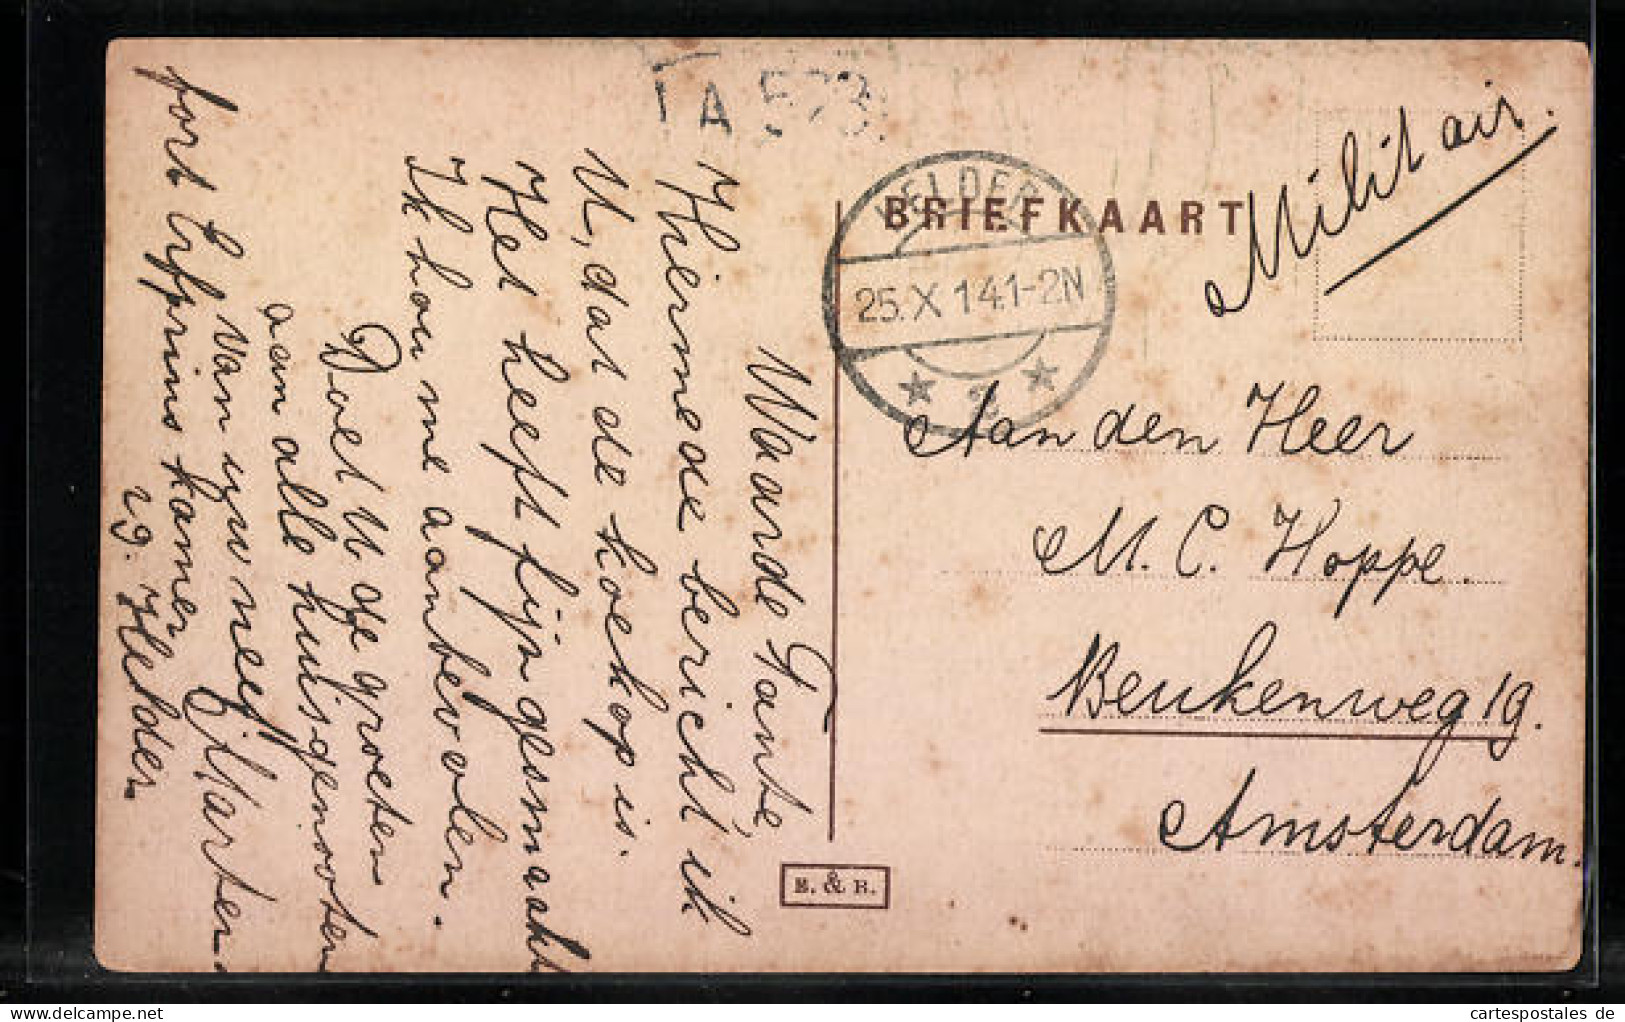 A 523
BRIEFKAART
Militair.
HELDER
25.X 14.1-2N
2
Aan den Heer
M. C. Hoppe.
Beukenweg 19.
Amsterdam.
E. & B.
Waarde Tante,
Hiermede bericht ik
U, dat de koek op is.
Het heeft fijn gesmaakt
Ik hou me aanbevolen.
Doet U de groeten
aan alle huisgenooten
Van uw neef Marten.
fort Erfprins kamer
29. Helder.
cartespostales de